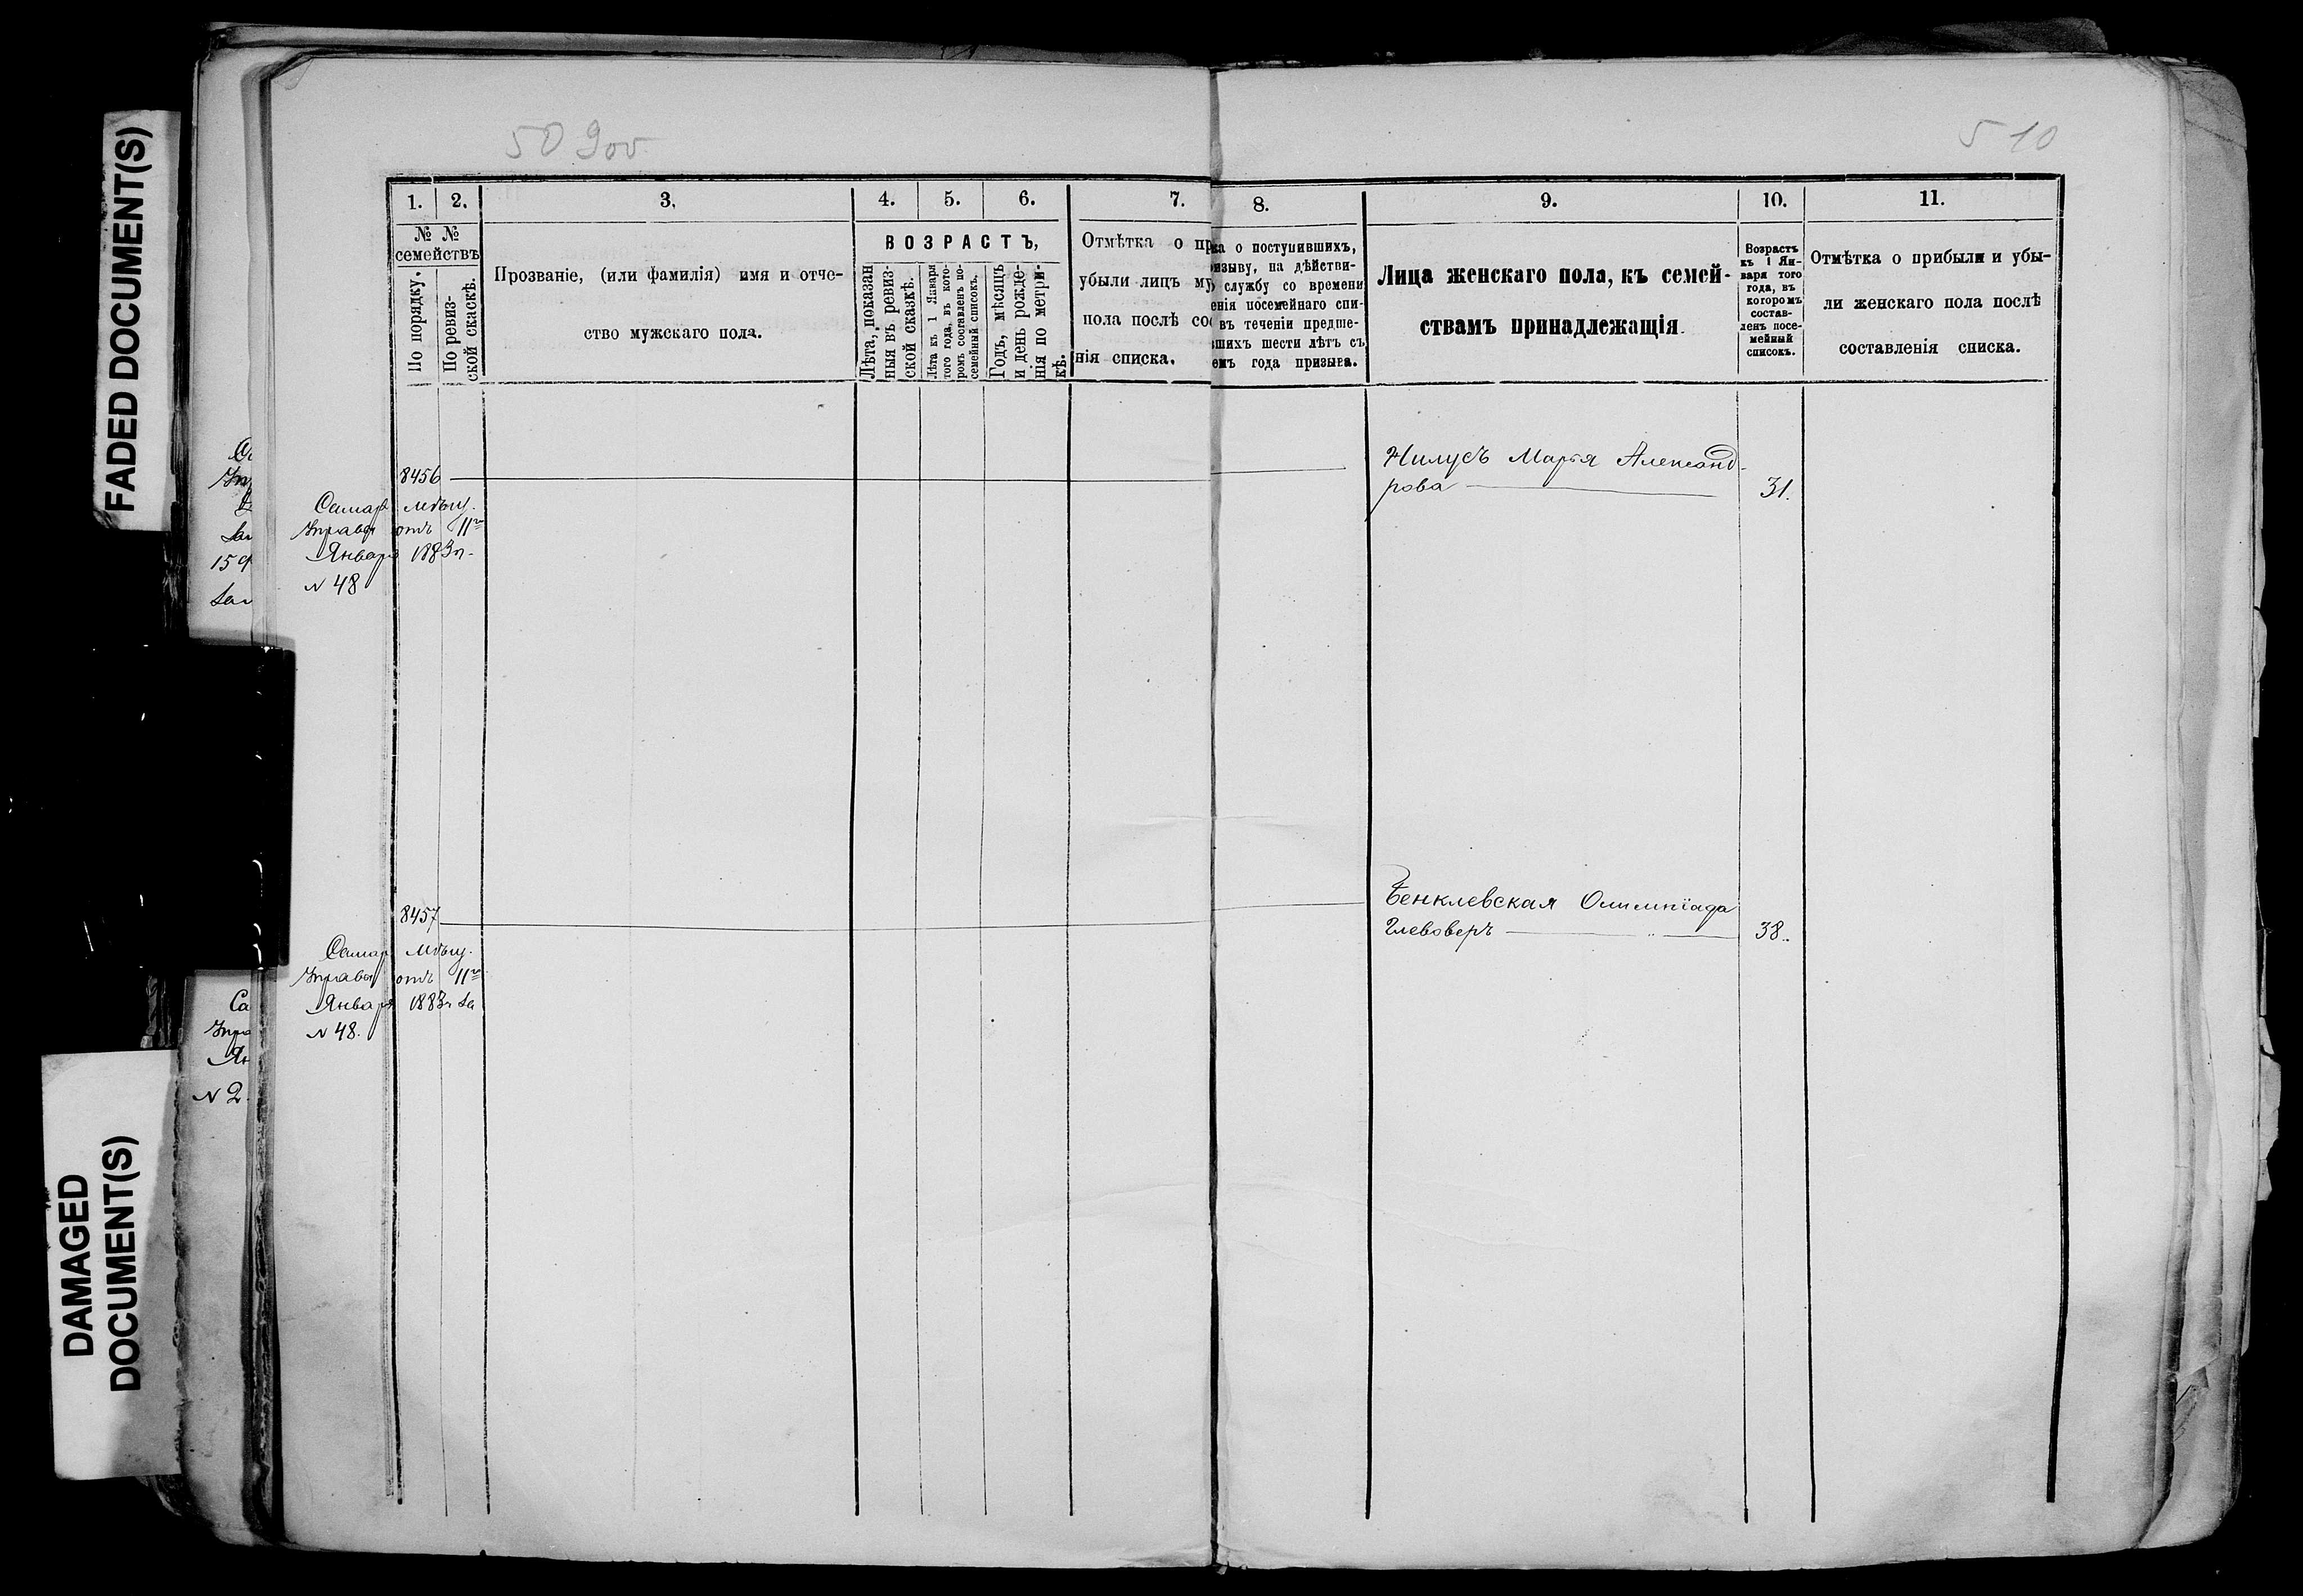 FADED DOCUMENT(S)
DAMAGED
DOCUMENT(S)
509об
510
1. 2. 3. 4. 5. 6. 7. 8. 9. 10. 11.
№ №
семействъ
По порядку.
По ревиз-
ской скаскѣ.
Прозваніе, (или фамилія) имя и отче-
ство мужскаго пола.
ВОЗРАСТЪ,
Лѣта, показан
ныя въ ревиз-
ской сказкѣ.
Лѣта къ 1 Января
того года, въ кото-
ромъ составленъ по-
семейный списокъ.
Годъ, мѣсяцъ
и день рожде-
нія по метри-
кѣ.
Отмѣтка о пр
убыли лицъ му
пола послѣ сос
нія списка.
ка о поступившихъ,
изыву, на дѣйстви-
службу со времени
енія посемейнаго спи-
въ теченіи предше-
шихъ шести лѣтъ съ
емъ года призыва.
Лица женскаго пола, къ семей-
ствамъ принадлежащія.
Возрастъ
къ 1 Ян-
варя того
года, въ
которомъ
состав-
ленъ посе-
мейный
списокъ.
Отмѣтка о прибыли и убы-
ли женскаго пола послѣ
составленія списка.
8456
Самар мѣщ.
Управы отъ 11го
Января 1883г.
N 48
Нилусъ Марья Александ-
рова 31.
8457
Самар Мѣщ.
Управы отъ 11го
Января 1883г за
N 48.
Бенклевская Олимпіада
38.